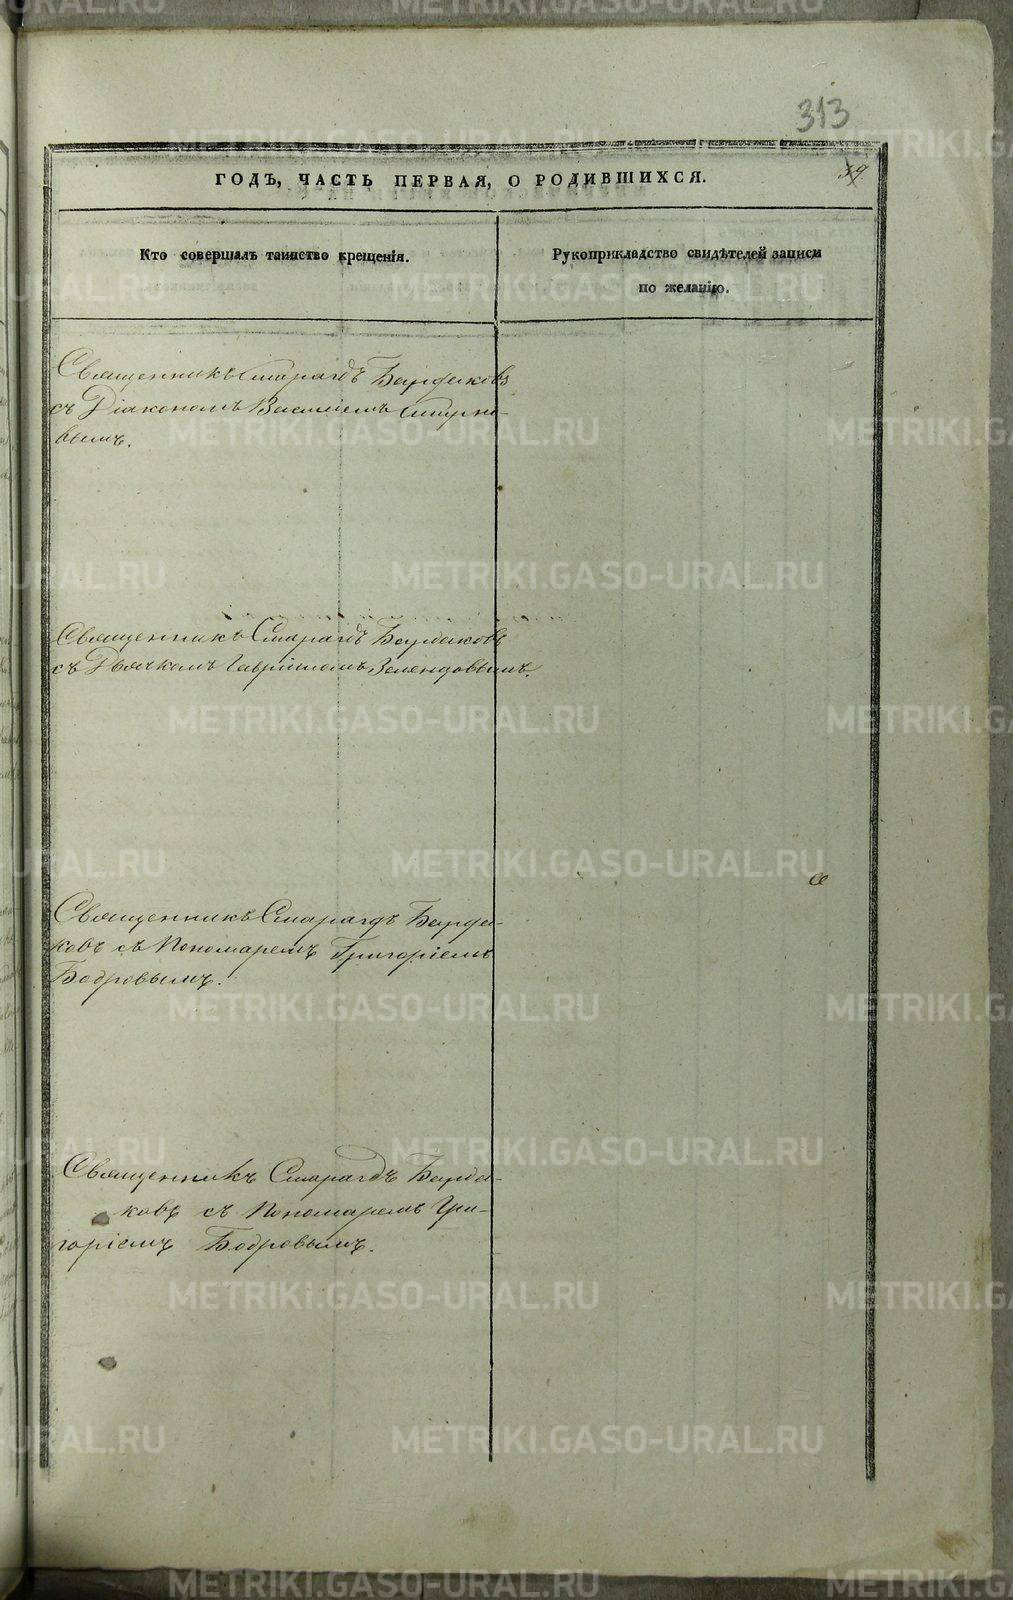 313
39
ГОДЪ, ЧАСТЬ ПЕРВАЯ, О РОДИВШИХСЯ.
Кто совершалъ таинство крещенія.
Рукоприкладство свидѣтелей записи
по желанію.
Священникъ Смарагдъ Бардаковъ
съ Діакономъ Василіемъ Смирно-
вымъ.
Священникъ Смарагдъ Бардаковъ
съ Дьячкомъ Гавріиломъ
Священникъ Смарагдъ Барда-
ковъ съ Пономаремъ Григоріемъ
Бобровымъ.
Священникъ Смарагдъ Барда-
ковъ съ Пономаремъ Гри-
горіемъ Бобровымъ.
METRIKI.GASO-URAL.RU